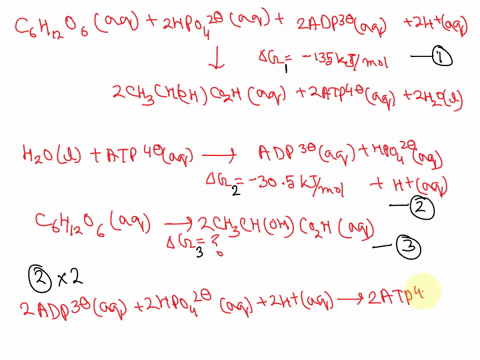 C6H12O6(aq) + 2HPO4^2⊖(aq) + 2ADP^3⊖(aq) + 2H+(aq)
↓ ΔG1 = -135 kJ/mol —①
2CH3CH(OH)CO2H(aq) + 2ATP^4⊖(aq) + 2H2O(l)
H2O(l) + ATP^4⊖(aq) → ADP^3⊖(aq) + HPO4^2⊖(aq)
ΔG2 = -30.5 kJ/mol + H+(aq)
—②
C6H12O6(aq) → 2CH3CH(OH)CO2H(aq)
ΔG3 = ? —③
② × 2
2ADP^3⊖(aq) + 2HPO4^2⊖(aq) + 2H+(aq) → 2ATP^4